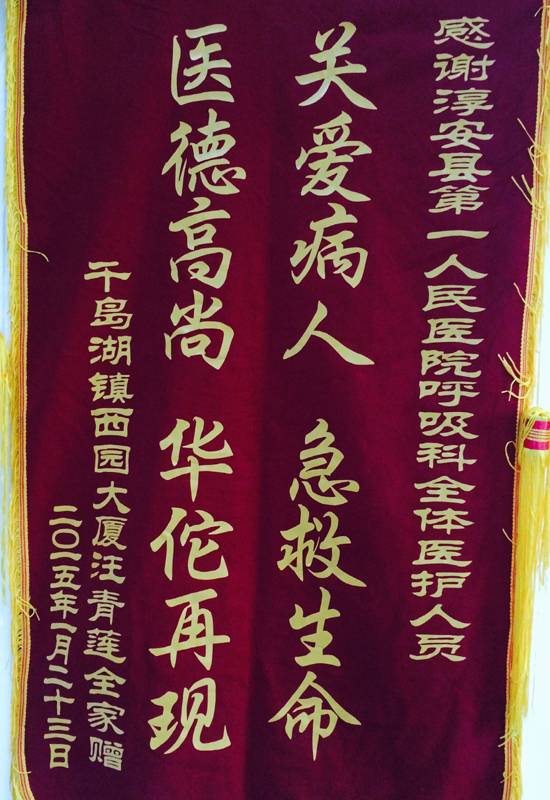 感谢淳安县第一人民医院呼吸科全体医护人员
关爱病人 急救生命
医德高尚 华佗再现
千岛湖镇西园大厦汪青莲全家赠
二〇一五年一月二十三日